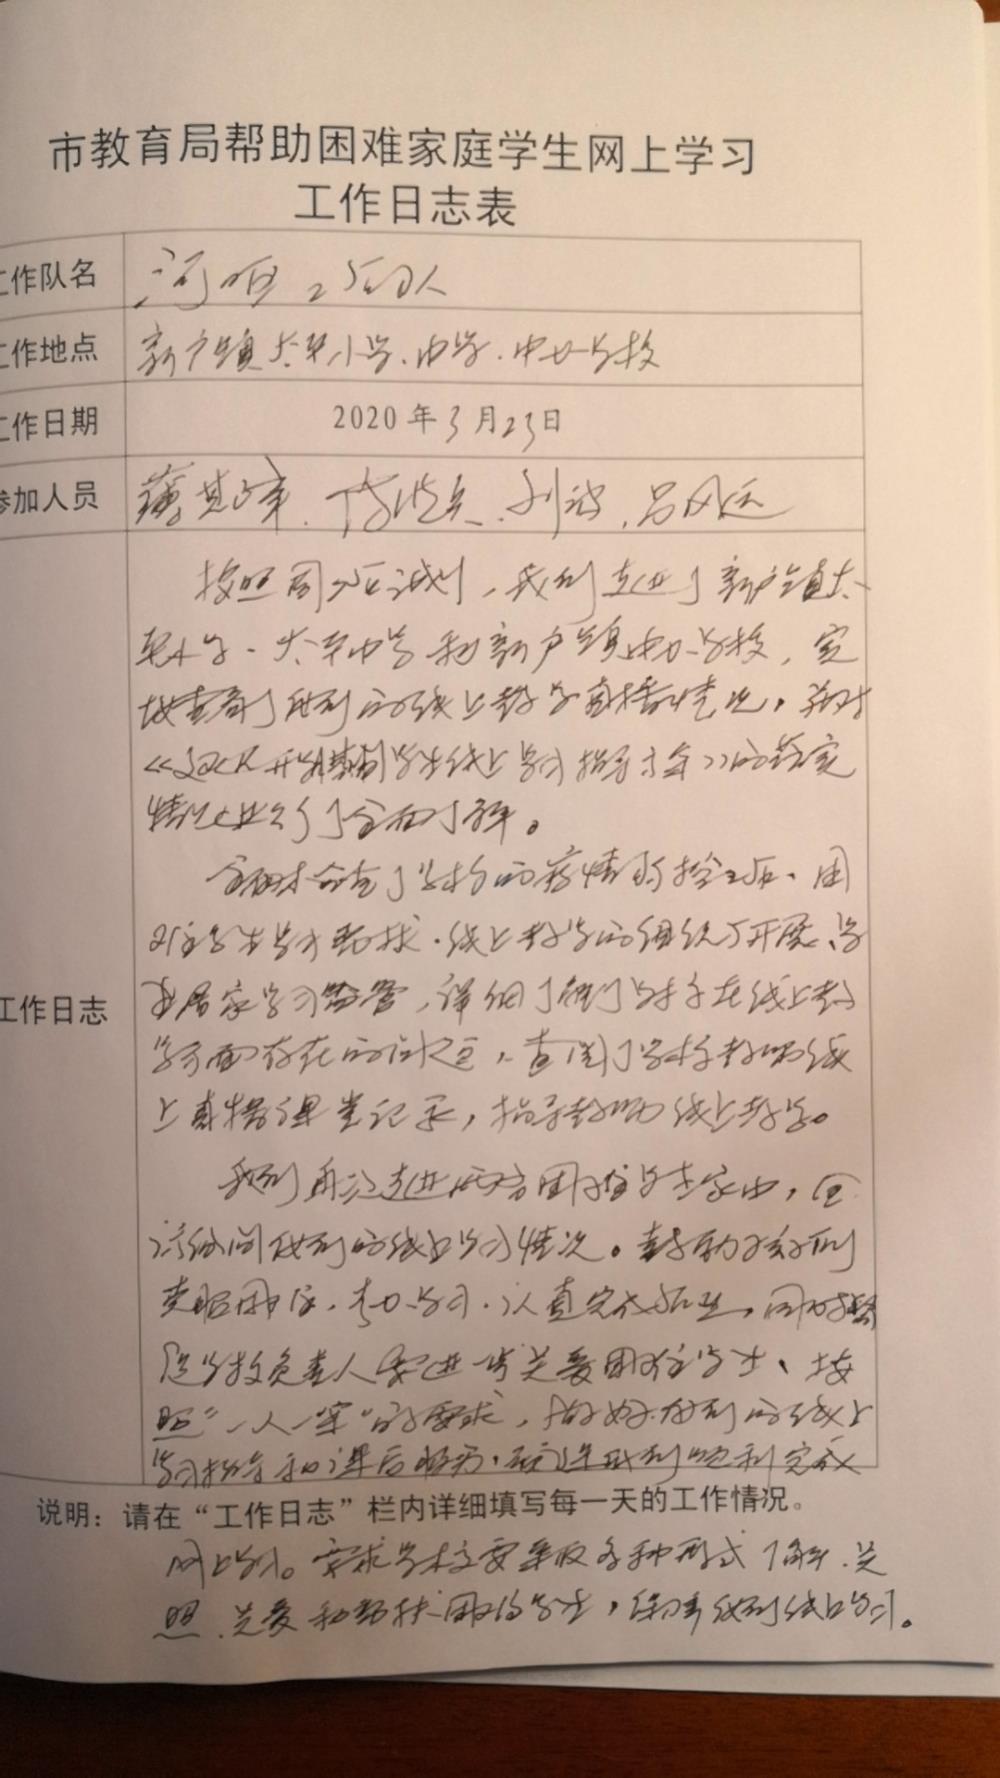 市教育局帮助困难家庭学生网上学习
工作日志表
工作队名
工作地点 新户镇太平小学、中学、中心学校
工作日期 2020年3月23日
参加人员
按照局 ，我们走进了新户镇太
平小学、太平中学和新户镇中心学校，实
地查看了 的线上教学直播情况，并对
开学 学生线上学习指导 》的落实
情况进行了全面了解。
全面 查了学校的疫情防控 、困
难学生学习帮扶、线上教学的组织与开展、学
生居家学习监管，详细了解了学校在线上教
学方面存在的问题，查阅了学校教师线
上直播课堂记录，指导教师线上教学。
我们再次走进两名困难学生家中，
询问他们的线上学习情况。鼓励孩子们
克服困难、 学习、认真完成作业，同时
学校负责人要进一步关爱困难学生、按
照“一人一案”的要求，做好他们的线上
学习指导和课后服务， 他们顺利完成
说明：请在“工作日志”栏内详细填写每一天的工作情况。
网上学习。要求学校要采取各种形式了解、关
照、关爱和帮扶困难学生， 他们线上学习。